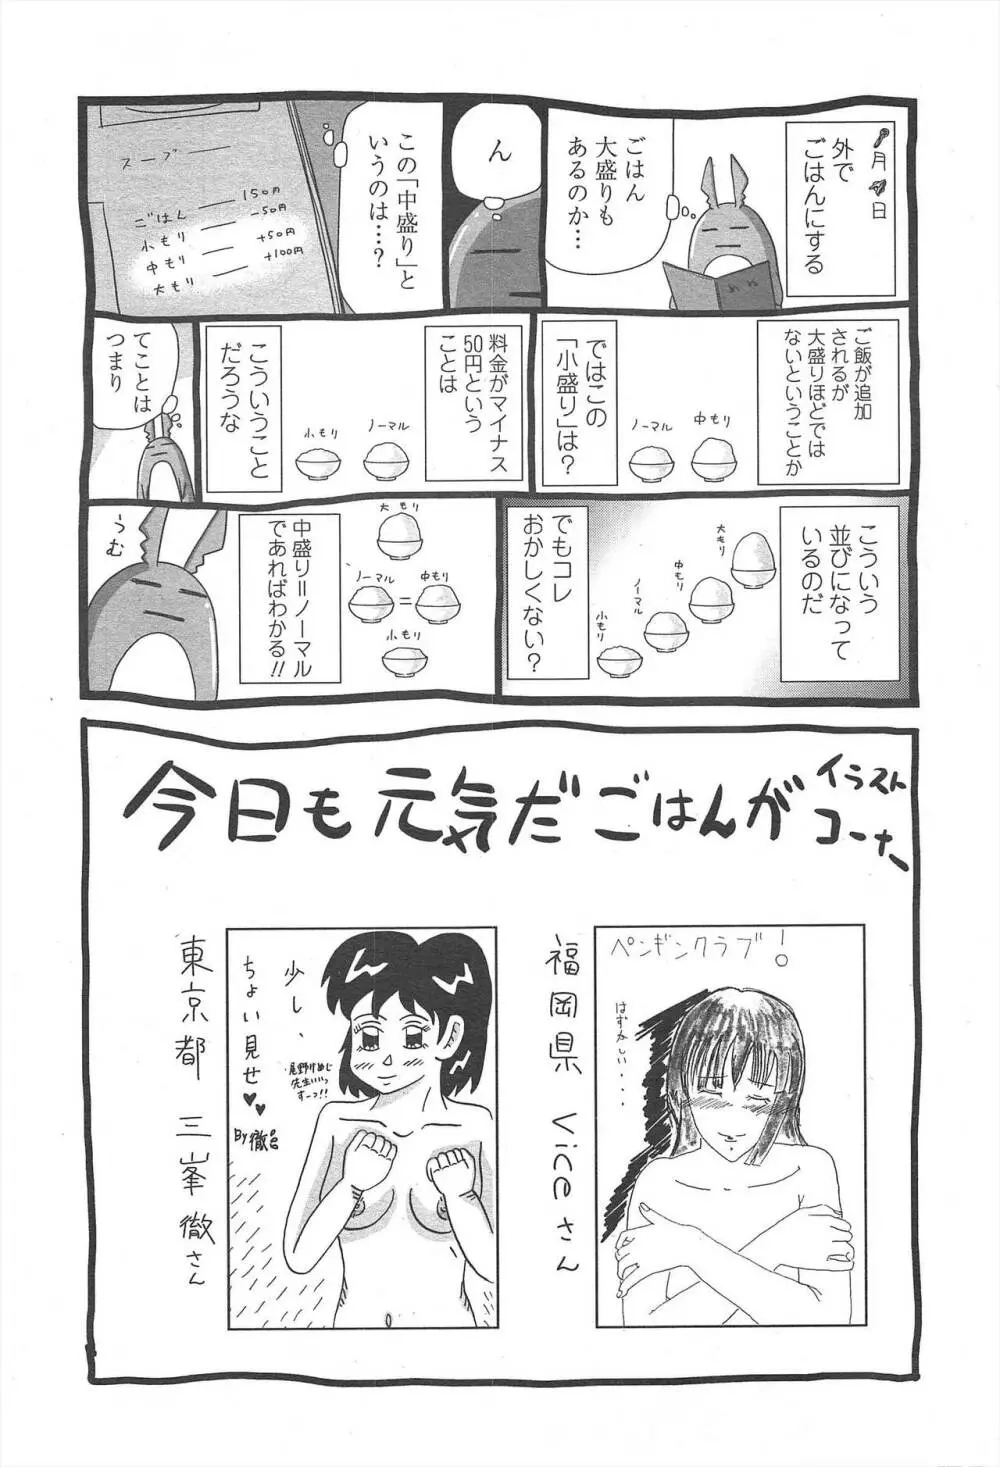 月 日
外で
ごはんにする
めぬ
ごはん
大盛りも
あるのか…
ん
この「中盛り」と
いうのは…?
スープ
ごはん 150円
小もり -50円
中もり +50円
大もり +100円
ご飯が追加
されるが
大盛りほどでは
ないということか
中もり
ノーマル
ではこの
「小盛り」は?
料金がマイナス
50円という
ことは
ノーマル
小もり
こういうこと
だろうな
てことは
つまり
こういう
並びになって
いるのだ
大もり
中もり
ノーマル
小もり
でもコレ
おかしくない?
大もり
ノーマル
=
中もり
小もり
中盛り=ノーマル
であればわかる!!
うむ
今日も元気だごはんが
イラスト
コーナー
ペンギンクラブ!
はずかしい・・・
福岡県 Viceさん
少し、
ちょい見せ♥♥
尾野けぬじ
先生いいっ
すーっ!!
By 徹
東京都 三峯徹さん